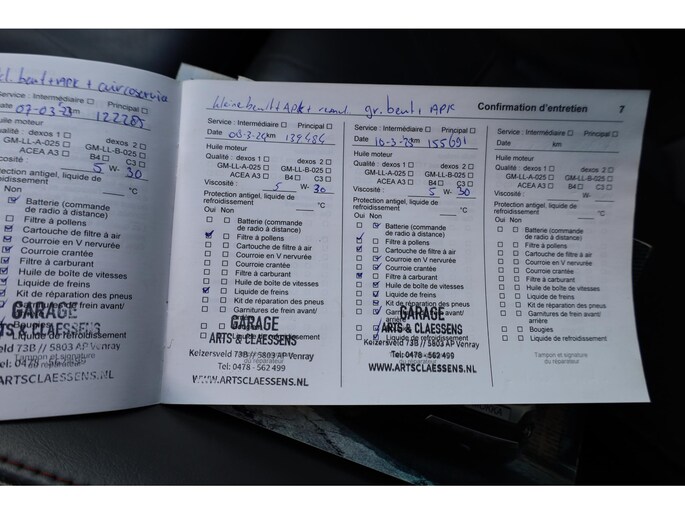 beurt + APK + aircoservice
Service : Intermédiaire Principal
Date 07-03-23 km 122285
Huile moteur
Qualité : dexos 1 dexos 2
GM-LL-A-025 GM-LL-B-025
ACEA A3 B4 C3
Viscosité : 5 W- 30
Protection antigel, liquide de
refroidissement °C
Non
Batterie (commande
de radio à distance)
Filtre à pollens
Cartouche de filtre à air
Courroie en V nervurée
Courroie crantée
Filtre à carburant
Huile de boîte de vitesses
Liquide de freins
Kit de réparation des pneus
Garnitures de frein avant/
GARAGE
ARTS & CLAESSENS
Bougies
Liquide de refroidissement
73B // 5803 AP Venray
Tampon et signature
du réparateur
ARTSCLAESSENS.NL
kleine beurt + APK +
Service : Intermédiaire Principal
Date 08-3-24 km 139484
Huile moteur
Qualité : dexos 1 dexos 2
GM-LL-A-025 GM-LL-B-025
ACEA A3 B4 C3
Viscosité : 5 W- 30
Protection antigel, liquide de
refroidissement °C
Oui Non
Batterie (commande
de radio à distance)
Filtre à pollens
Cartouche de filtre à air
Courroie en V nervurée
Courroie crantée
Filtre à carburant
Huile de boîte de vitesses
Liquide de freins
Kit de réparation des pneus
Garnitures de frein avant/
GARAGE
ARTS & CLAESSENS
Keizersveld 73B // 5803 AP Venray
Tel: 0478 - 562 499
WWW.ARTSCLAESSENS.NL
gr. beurt, APK
Service : Intermédiaire Principal
Date 10-3-25 km 155691
Huile moteur
Qualité : dexos 1 dexos 2
GM-LL-A-025 GM-LL-B-025
ACEA A3 B4 C3
Viscosité : 5 W- 30
Protection antigel, liquide de
refroidissement °C
Oui Non
Batterie (commande
de radio à distance)
Filtre à pollens
Cartouche de filtre à air
Courroie en V nervurée
Courroie crantée
Filtre à carburant
Huile de boîte de vitesses
Liquide de freins
Kit de réparation des pneus
Garnitures de frein avant/
arrière
GARAGE
ARTS & CLAESSENS
Keizersveld 73B // 5803 AP Venray
Tel: 0478 - 562 499
WWW.ARTSCLAESSENS.NL
Confirmation d'entretien 7
Service : Intermédiaire Principal
Date km
Huile moteur
Qualité : dexos 1 dexos 2
GM-LL-A-025 GM-LL-B-025
ACEA A3 B4 C3
Viscosité : W-
Protection antigel, liquide de
refroidissement °C
Oui Non
Batterie (commande
de radio à distance)
Filtre à pollens
Cartouche de filtre à air
Courroie en V nervurée
Courroie crantée
Filtre à carburant
Huile de boîte de vitesses
Liquide de freins
Kit de réparation des pneus
Garnitures de frein avant/
arrière
Bougies
Liquide de refroidissement
Tampon et signature
du réparateur